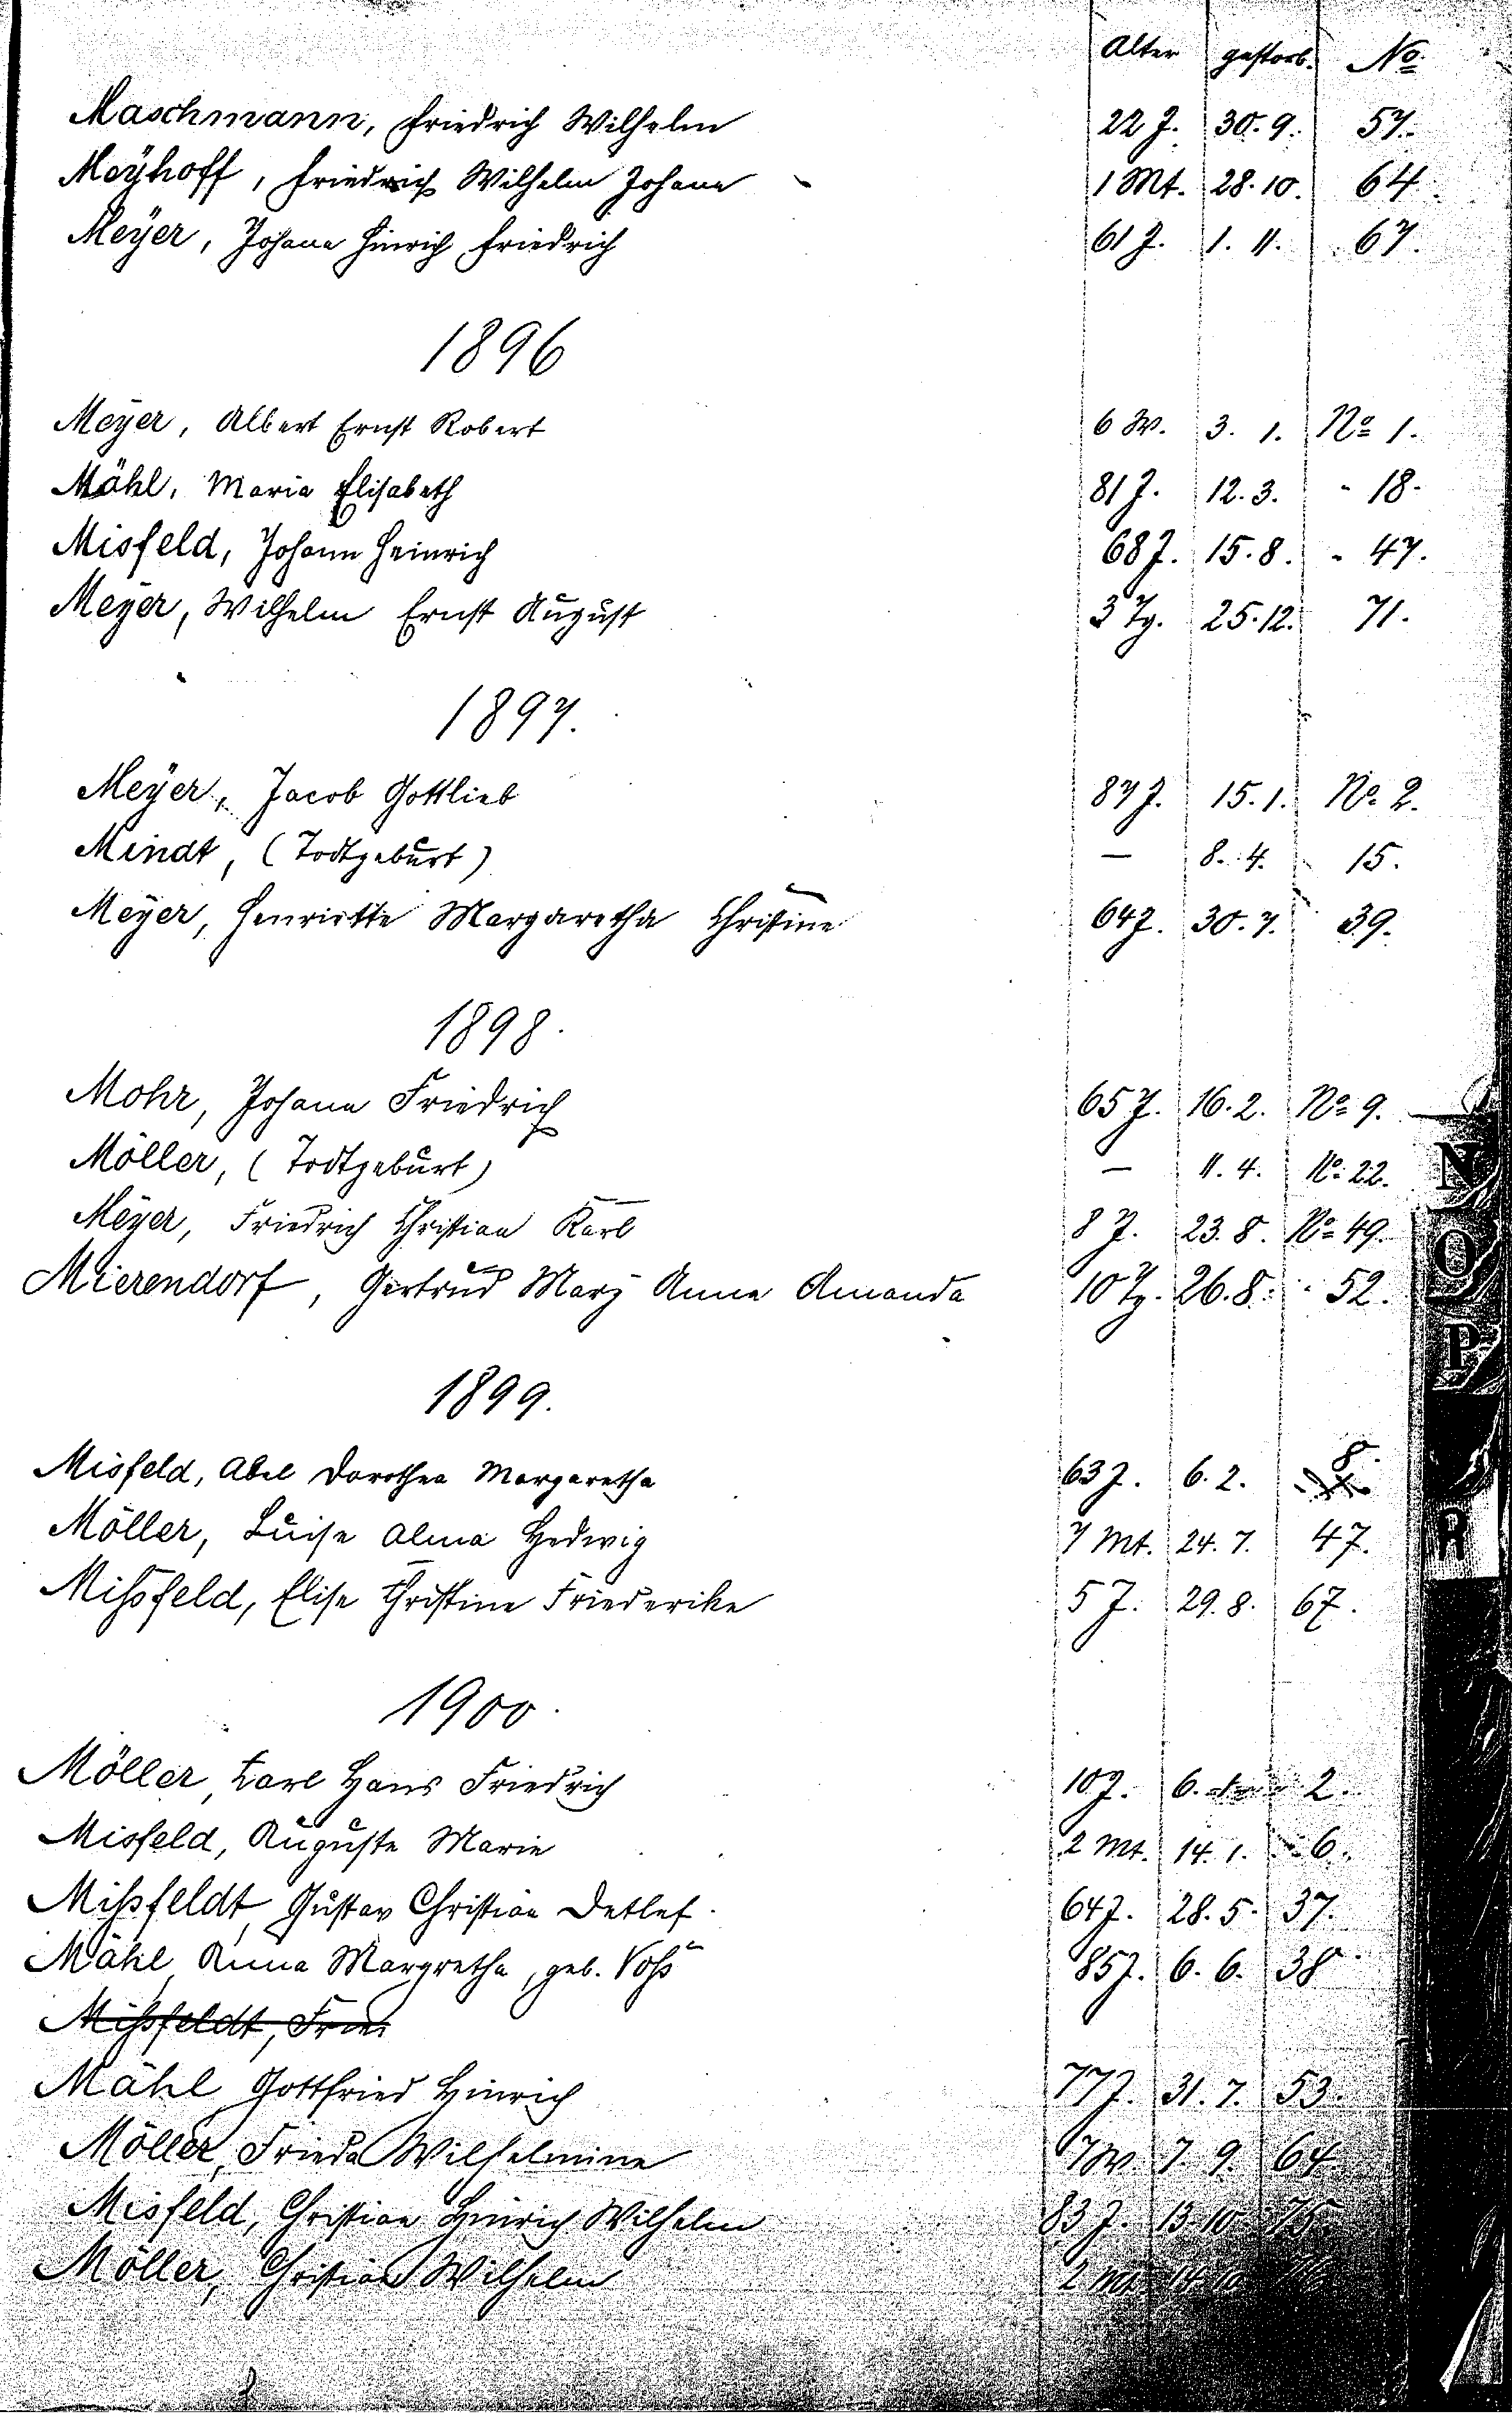 Alter gestorb. No
Maschmann, Friedrich Wilhelm 22 J. 30. 9. 57.
Meÿhoff, Friedrich Wilhelm Johann 1 Mt. 28. 10. 64.
Meÿer, Johann Hinrich Friedrich 61 J. 1. 11. 67.
1896
Meÿer, Albert Ernst Robert 6 W. 3. 1. No 1.
Mähl, Maria Elisabeth 81 J. 12. 3. " 18.
Misfeld, Johann Heinrich 68 J. 15. 8. " 47.
Meÿer, Wilhelm Ernst August 3 Tg. 25. 12. 71.
1897.
Meÿer, Jacob Gottlieb 87 J. 15. 1. No 2.
Mindt, (Todtgeburt) — 8. 4. 15.
Meÿer, Henriette Margaretha Christine 64 J. 30. 7. 39.
1898.
Mohr, Johann Friedrich 65 J. 16. 2. No 9.
Möller, (Todtgeburt) — 11. 4. No 22.
Meÿer, Friedrich Christian Karl 8 J. 23. 8. No 49.
Mierendorf, Gertrud Mary Anna Amanda 10 Tg. 26. 8. " 52.
1899.
Misfeld, Abel Dorothea Margaretha 63 J. 6. 2. 8.
Möller, Luise Alma Hedwig 7 Mt. 24. 7. 47.
Mißfeld, Elise Christine Friederike 5 J. 29. 8. 67.
1900.
Möller, Karl Hans Friedrich 10 J. 6. 1. 2.
Misfeld, Auguste Marie 2 Mt. 14. 1. 6.
Mißfeldt, Gustav Christian Detlef 64 J. 28. 5. 37.
Mähl, Anna Margretha, geb. Voß 85 J. 6. 6. 38
Mißfeldt, Frie
Mähl, Gottfried Hinrich 77 J. 31. 7. 53.
Möller, Frieda Wilhelmine 7 W. 7. 9. 64.
Misfeld, Christian Hinrich Wilhelm 83 J. 13. 10. 75.
Möller, Christian Wilhelm 2 Mt. 14. 10.
N
O
P
R